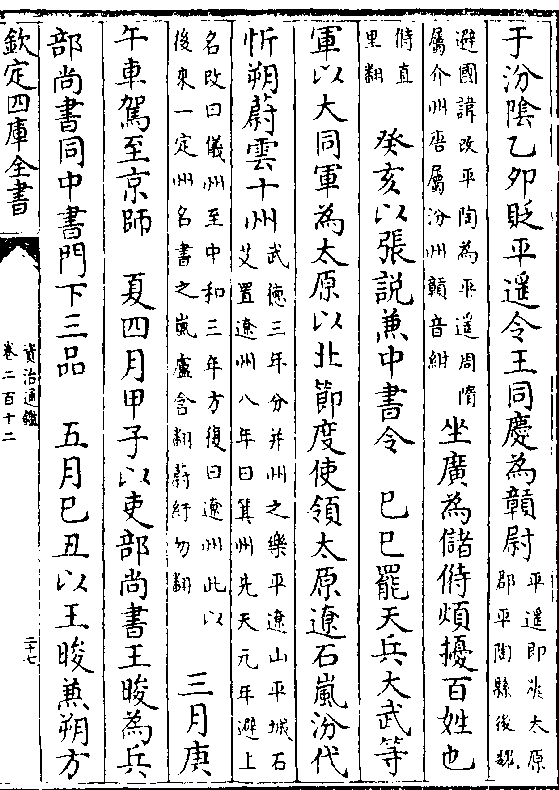 于汾陰乙卯貶平遥令王同慶為贛尉
平遥即漢太原
郡平陶縣後魏
避國諱改平陶為平遥周隋
屬介州唐屬汾州贛音紺
坐廣為儲偫煩擾百姓也
偫直
里翻
癸亥以張說兼中書令　巳巳罷天兵大武等
軍以大同軍為太原以北節度使領太原遼石嵐汾代
忻朔蔚雲十州
武德三年分并州之樂平遼山平城石
艾置遼州八年曰箕州先天元年避上
名改曰儀州至中和三年方復曰遼州此以
後來一定州名書之嵐盧含翻蔚紆勿翻
三月庚
午車駕至京師　夏四月甲子以吏部尚書王晙為兵
部尚書同中書門下三品　五月巳丑以王晙兼朔方
欽定四庫全書
資治通鑑
卷二百十二
二十七